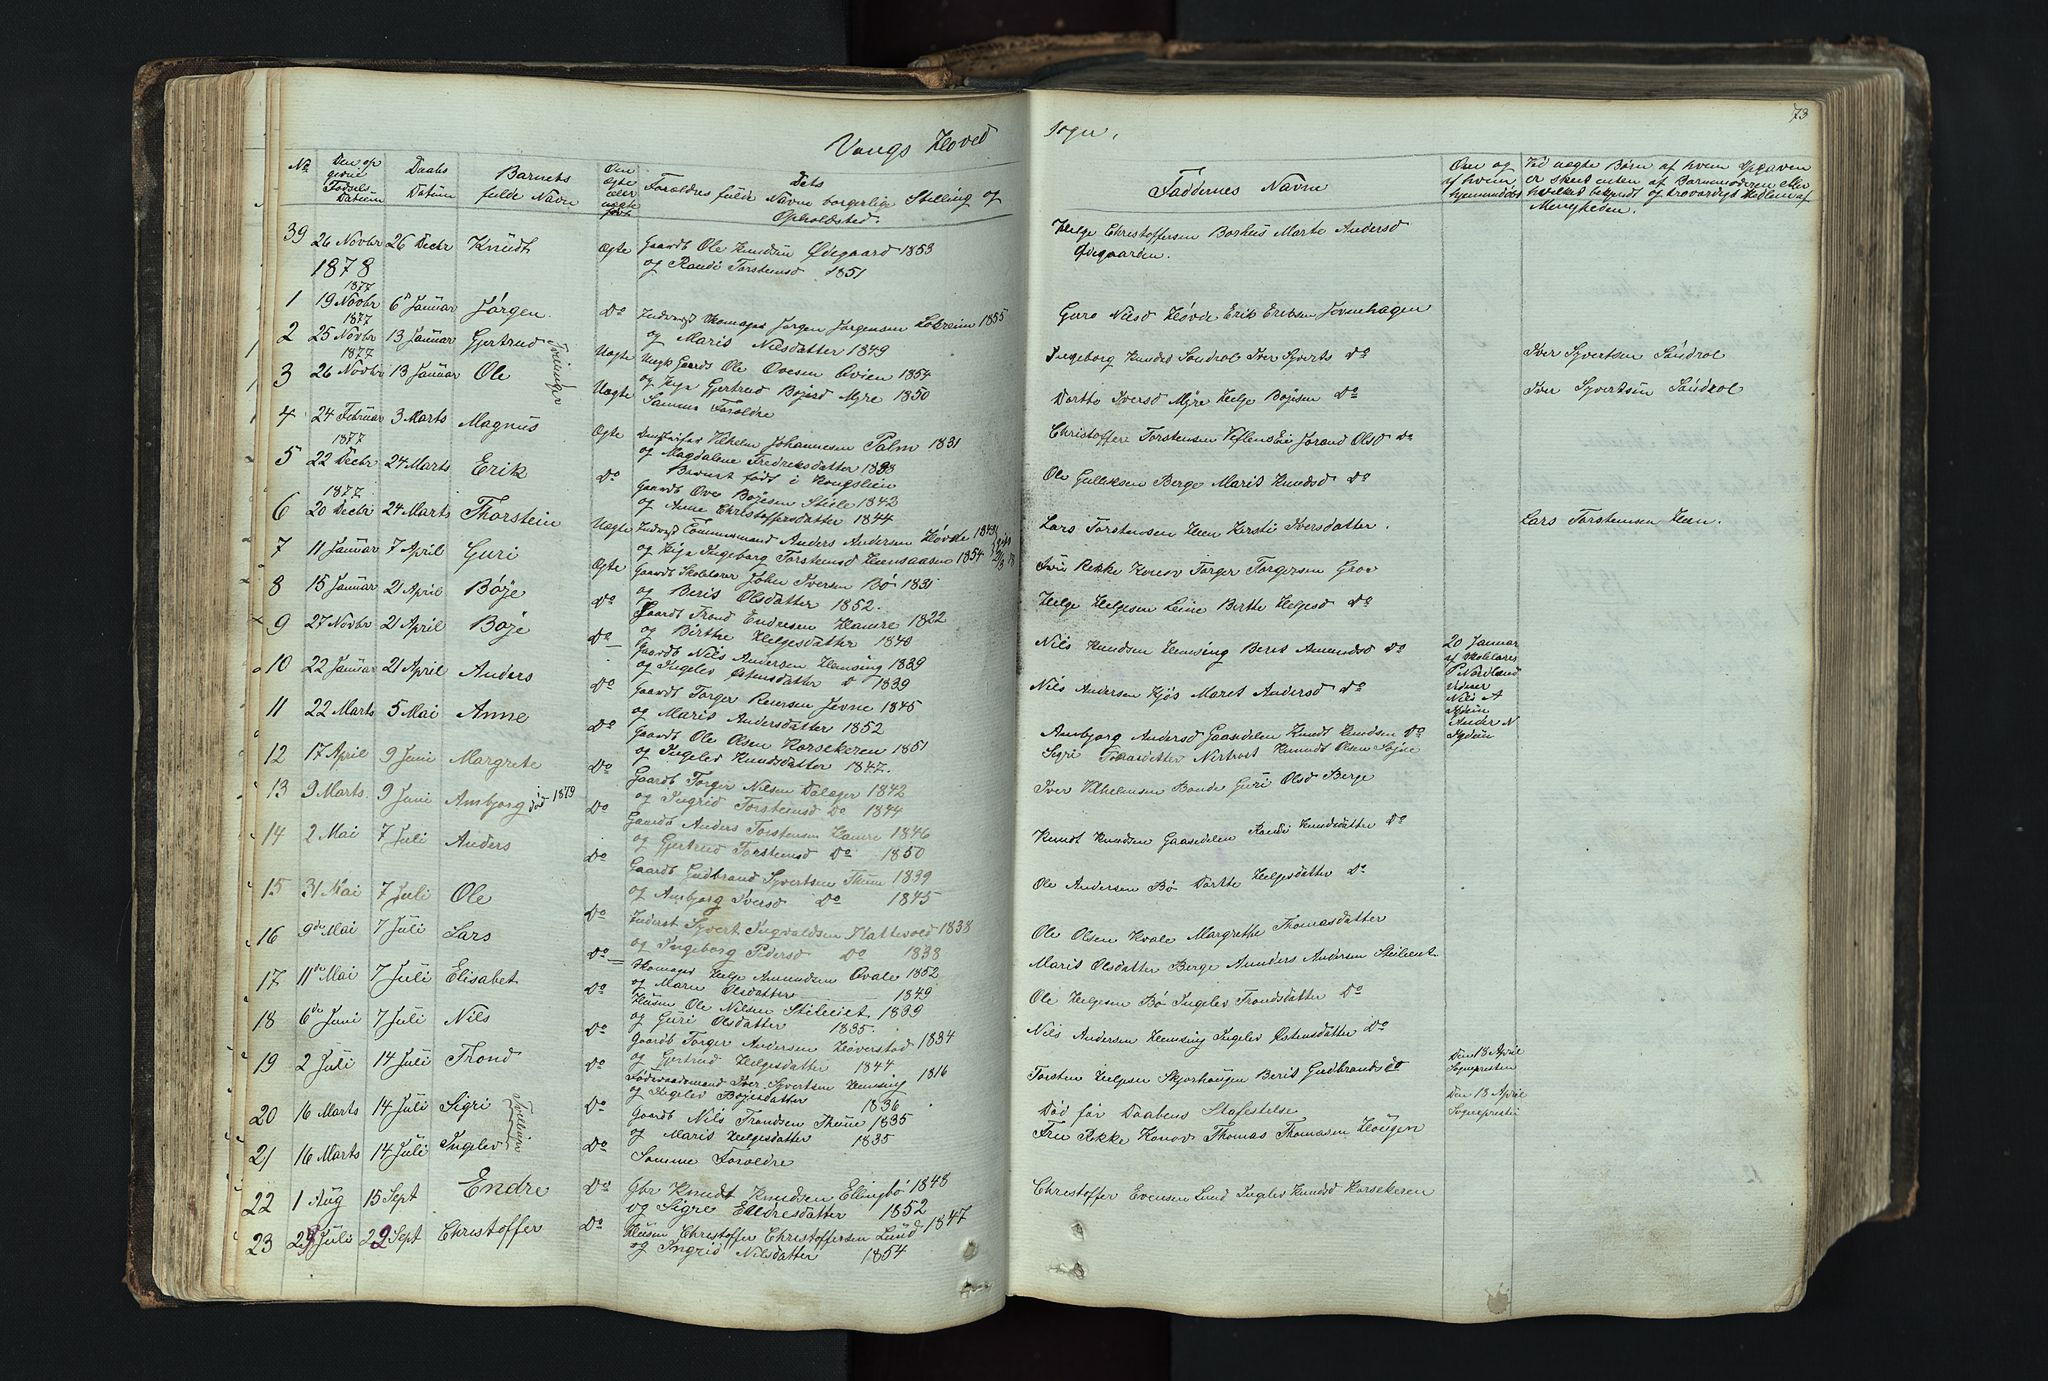 Vangs Hoved
Sogn.
73
No
Den opgivne Fødsels-Datum
Daabs Datum
Barnets fulde Navn
Om ægte eller uægte født
Forældres fulde Navne borgerlig Stilling og
Dets
Opholdsted.
Faddernes Navne
Over og af hvem hjemmedøbt
Ved uægte Børn af hvem Opgaven
er skeet enten af Barnemoderen eller
hvilket bekjendt og troværdigt Medlem af
Menigheden.
39 26 Novbr 26 Decbr Knudt Ægte Gaardb Ole Knudsen Ødegaard 1853
og Randi Torstensd 1851
Helge Christoffersen Borhus Marte Andersd
Ødegaarden.
1878
1 19 Novbr 1877 6te Januar Jørgen Do Jørgen Jørgensen 1855
og Marit Nilsdatter 1849
Guro Nilsd Hovde Erik Eriksen
2 25 Novbr 1877 13 Januar Gjertrud Uægte Ungk Gaardb Ole Ovesen Qvien 1854
og Pige Gjertrud Bøjesd Myre 1850
Ingeborg Knudsd Søndrol Iver Syverts Do
Iver Syvertsen Søndrol
Tvillinger
3 26 Novbr 1877 13 Januar Ole Uægte Samme Forældre
Dorthe Iversd Myre Helge Bøjesen Do
Iver Syvertsen Søndrol
4 24 Februar 3 Marts Magnus Ægte Vilhelm Johannesen Palm 1831
og Magdalene Fredriksdatter 1838
Barnet født i Kongslien
Christoffer Torstensen Jorand Olsd Do
5 22 Decbr 1877 24 Marts Erik Do Gaardb Ove Bøjesen Stiele 1842
og Anne Christoffersdatter 1844
Ole Gulliksen Berge Marit Knudsd Do
6 20 Decbr 1877 24 Marts Thorstein Uægte Anders Andersen Hovde
og Pige Ingeborg Torstensd Heensaasen 1854
Lars Torstensen Heen Kersti Iversdatter.
Lars Torstensen Heen.
7 11 Januar 7 April Guri Ægte Gaardb Skolelærer John Iversen Bø 1835
og Berit Olsdatter 1852.
Fru Rikke Konow Torger Torgersen Groe
8 15 Januar 21 April Bøje Do Gaardb Trond Endresen Hamre 1822
og Birthe Helgesdatter 1840
Helge Helgesen Leine Birthe Helgesd Do
9 27 Novbr 21 April Bøje Do Gaardb Nils Andersen Hemsing 1839
og Ingelev Østensdatter Do 1839
Nils Knudsen Hemsing Berit Amundsd Do
20 Januar
af Skolelærer
P Nordland
Vidner
Nils A
Anders N
10 22 Januar 21 April Anders Do Gaardb Torger Jevne 1845
og Marit Andersdatter 1852
Nils Andersen Kjøs Maret Andersd Do
11 22 Marts 5 Mai Anne Do Gaardb Ole Olsen Korsekeren 1851
og Ingelev Knudsdatter 1847.
Ambjørg Andersd Gaasedelen Knudt Knudsen Do
12 17 April 9 Juni Margrete Do Gaardb Torger Nilsen Dalager 1842
og Ingrid Torstensd Do 1844
Sigri Nertrost Knudt Olsen
13 9 Marts 9 Juni Ambjørg død 1879 Do Gaardb Anders Torstensen Hamre 1846
og Gjertrud Torstensd Do 1850
Iver Vilhelmsen Bonde Guri Olsd Berge
14 2 Mai 7 Juli Anders Do Gaardb Gudbrand Syvertsen Thune 1839
og Ambjørg Iversd Do 1845
Knudt Knudsen Gaasedelen Randi Knudsdatter Do
15 31 Mai 7 Juli Ole Do Inderst Syvert Ingvaldsen 1838
og Ingeborg Pedersd Do 1838
Ole Andersen Bø Dorthe Helgesdatter Do
16 9de Mai 7 Juli Lars Do Skomager Helge Amundsen Qvale 1852
og Marie Olsdatter 1849
Ole Olsen Kvale Margrethe Thomasdatter
17 11de Mai 7 Juli Elisabet Do Husm Ole Nilsen Stileiet 1839
og Guri Olsdatter 1835.
Marit Olsdatter Berge Anders Andersen Stileiet
18 6de Juni 7 Juli Nils Do Gaardb Torger Andersen Høverstad 1834
og Gjertrud Helgesdatter 1844
Ole Helgesen Bø Ingelev Trondsdatter Do
19 2 Juli 14 Juli Trond Do Føderaadsmand Iver Syvertsen Hemsing 1816
og Ingelev Bøjesdatter 1836
Nils Andersen Hemsing Ingelev Østensdatter Do
20 16 Marts 14 Juli Sigri Do Gaardb Nils Trondsen Thune 1835
og Marit Helgesdatter 1835
Torsten Helgesen Skjørhaugen Berit Gudbrandsd
Den 18 April
Sognepresten
Tvillinger
Død før Daabens Stafestelse
Den 18 April
Sogneprest
21 16 Marts 14 Juli Ingelev Do Samme Forældre
Fru Rikke Konov Thomas Thomasen Høugen
22 1 Aug 15 Sept Endre Do Gbr Knudt Knudsen Ellingbø 1848
og Sigri Endresdatter 1852
Christoffer Evensen Lund Ingelev Knudsd Korsekeren
23 29 Juli 22 Sept Christoffer Do Husm Christoffer Christoffersen Lund 1847
og Ingrid Nilsdatter 1854